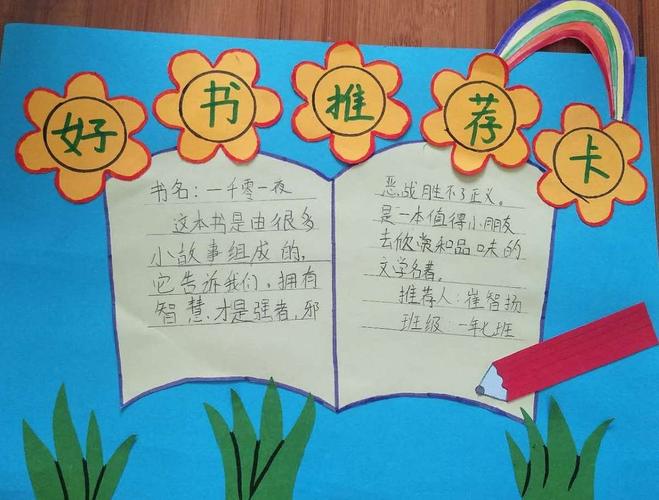 好书推荐卡
书名：一千零一夜
这本书是由很多
小故事组成的，
它告诉我们，拥有
智慧才是强者，邪
恶战胜不了正义。
是一本值得小朋友
去欣赏和品味的
文学名著。
推荐人：崔智扬
班级：一年七班